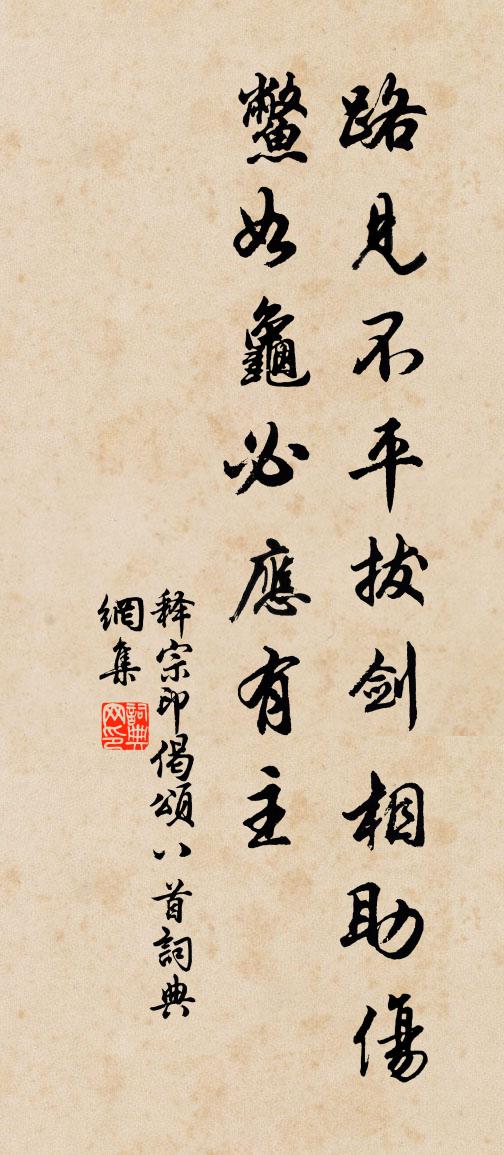 路見不平拔劍相助傷
鱉如龜必應有主
释宗印偈頌八首詞典
網集
詞典網印